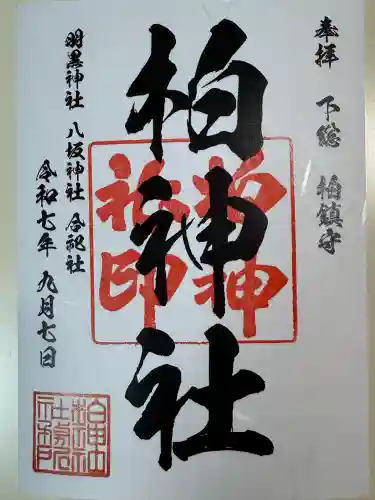 奉拝 下総 柏鎮守
柏神社
柏神社印
羽黒神社 八坂神社 合祀社
令和七年 九月七日